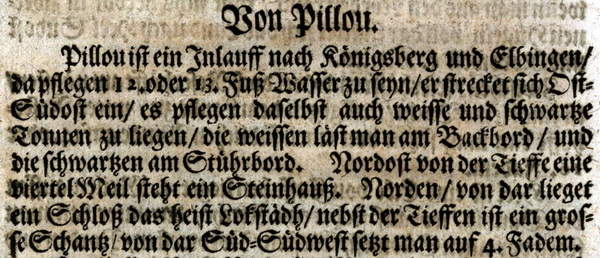 Von Pillou.
Pillou ist ein Inlauff nach Königsberg und Elbingen/
da pflegen 12. oder 13. Fuß Wasser zu seyn/ er strecket sich Ost-
Südost ein/ es pflegen daselbst auch weisse und schwartze
Tonnen zu liegen/ die weissen läst man am Backbord/ und
die schwartzen am Stührbord. Nordost von der Tieffe eine
viertel Meil steht ein Steinhauß. Norden/ von dar lieget
ein Schloß das heist Lokstädh/ nebst der Tieffen ist ein gros-
se Schantz/ von dar Süd-Südwest setzt man auf 4. Fadem.